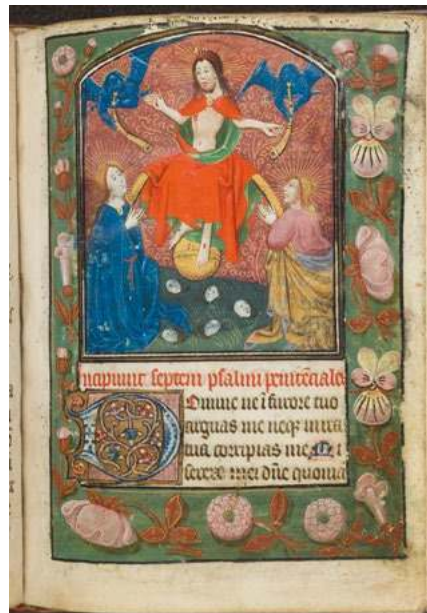 Incipiunt septem psalmi penitēciales
Domine ne ī furore tuo
arguas me neqȝ in ira
tua corripias me Mi
serere mei dn̄e quoniā